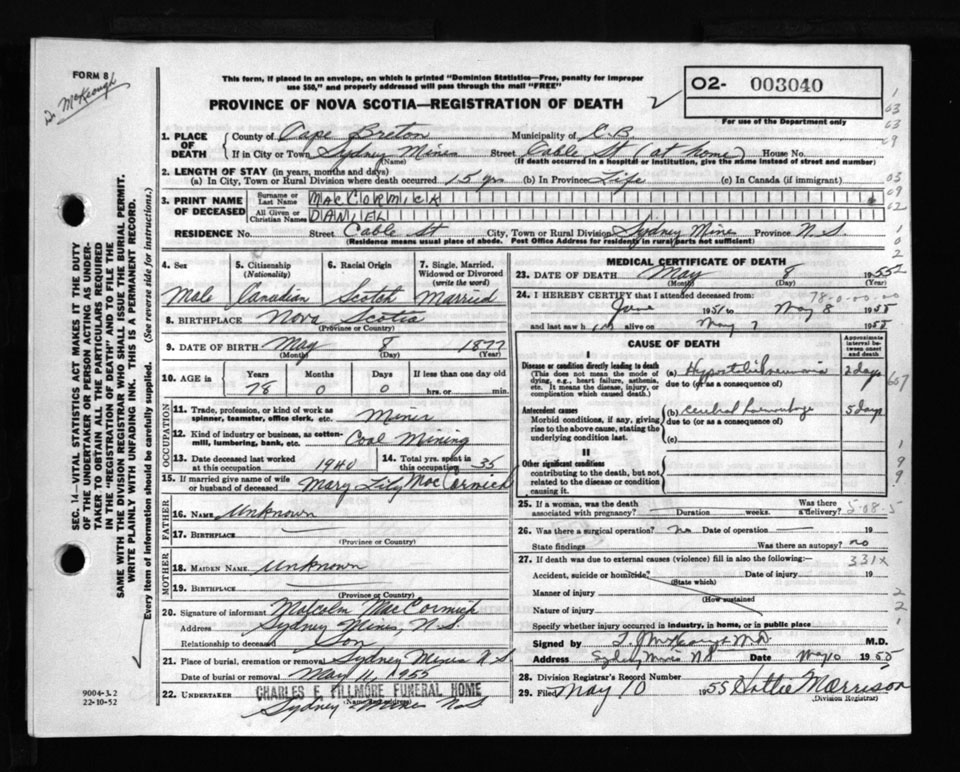 FORM 8
Dr McKeough
This form, if placed in an envelope, on which is printed "Dominion Statistics—Free, penalty for improper
use $50," and properly addressed will pass through the mail "FREE"
PROVINCE OF NOVA SCOTIA—REGISTRATION OF DEATH
O2- 003040
For use of the Department only
SEC. 14—VITAL STATISTICS ACT MAKES IT THE DUTY
OF THE UNDERTAKER OR PERSON ACTING AS UNDER-
TAKER TO OBTAIN ALL THE PARTICULARS REQUIRED
IN THE "REGISTRATION OF DEATH" AND TO FILE THE
SAME WITH THE DIVISION REGISTRAR WHO SHALL ISSUE THE BURIAL PERMIT.
WRITE PLAINLY WITH UNFADING INK. THIS IS A PERMANENT RECORD.
Every item of information should be carefully supplied. (See reverse side for instructions.)
1. PLACE OF DEATH
County of Cape Breton Municipality of C.B.
If in City or Town Sydney Mines Street Cable St (at home) House No.
(Name) (If death occurred in a hospital or institution, give the name instead of street and number)
2. LENGTH OF STAY (in years, months and days)
(a) In City, Town or Rural Division where death occurred 15 yrs (b) In Province Life (c) In Canada (if immigrant)
3. PRINT NAME OF DECEASED
Surname or Last Name MACCORMICK
All Given or Christian Names DANIEL
RESIDENCE No. Street Cable St City, Town or Rural Division Sydney Mines Province N.S.
(Residence means usual place of abode. Post Office Address for residents in rural parts not sufficient)
4. Sex
Male
5. Citizenship
(Nationality)
Canadian
6. Racial Origin
Scotch
7. Single, Married,
Widowed or Divorced
(write the word)
Married
8. BIRTHPLACE Nova Scotia
(Province or Country)
9. DATE OF BIRTH May 8 1877
(Month) (Day) (Year)
10. AGE in Years Months Days If less than one day old
78 0 0 hrs. or min.
OCCUPATION
11. Trade, profession, or kind of work as
spinner, teamster, office clerk, etc. Miner
12. Kind of industry or business, as cotton-
mill, lumbering, bank, etc. Coal Mining
13. Date deceased last worked
at this occupation 1940
14. Total yrs. spent in
this occupation 35
15. If married give name of wife
or husband of deceased Mary Lily MacCormick
FATHER
16. NAME Unknown
17. BIRTHPLACE
(Province or Country)
MOTHER
18. MAIDEN NAME Unknown
19. BIRTHPLACE
(Province or Country)
20. Signature of informant Malcolm MacCormick
Address Sydney Mines, N.S.
Relationship to deceased Son
21. Place of burial, cremation or removal Sydney Mines N S
Date of burial or removal May 11, 1955
22. UNDERTAKER CHARLES E. FILLMORE FUNERAL HOME
(Name and address)
Sydney Mines N.S
9004-3.2
22-10-52
MEDICAL CERTIFICATE OF DEATH
23. DATE OF DEATH May 8 1955
(Month) (Day) (Year)
78-0-00-00
24. I HEREBY CERTIFY that I attended deceased from
June 1951 to May 8 1955
and last saw him alive on May 7 1955
CAUSE OF DEATH
Approximate interval between onset and death
I
Disease or condition directly leading to death
(This does not mean the mode of
dying, e.g., heart failure, asthenia,
etc. It means the disease, injury, or
complication which caused death.)
(a) Hypostatic pneumonia 2 days
due to (or as a consequence of)
Antecedent causes
Morbid conditions, if any, giving
rise to the above cause, stating the
underlying condition last.
(b) cerebral haemorrhage 5 days
due to (or as a consequence of)
(c)
II
Other significant conditions
contributing to the death, but not
related to the disease or condition
causing it.
25. If a woman, was the death
associated with pregnancy? Duration weeks. Was there
a delivery?
26. Was there a surgical operation? no Date of operation 19
State findings Was there an autopsy? no
27. If death was due to external causes (violence) fill in also the following:—
331X
Accident, suicide or homicide? Date of injury 19
(State which)
Manner of injury
(How sustained
Nature of injury
Specify whether injury occurred in industry, in home, or in public place
Signed by M.D. M.D.
Address Sydney Mines N S Date May 10 1955
28. Division Registrar's Record Number
29. Filed May 10 1955 Hattie Morrison
(Division Registrar)